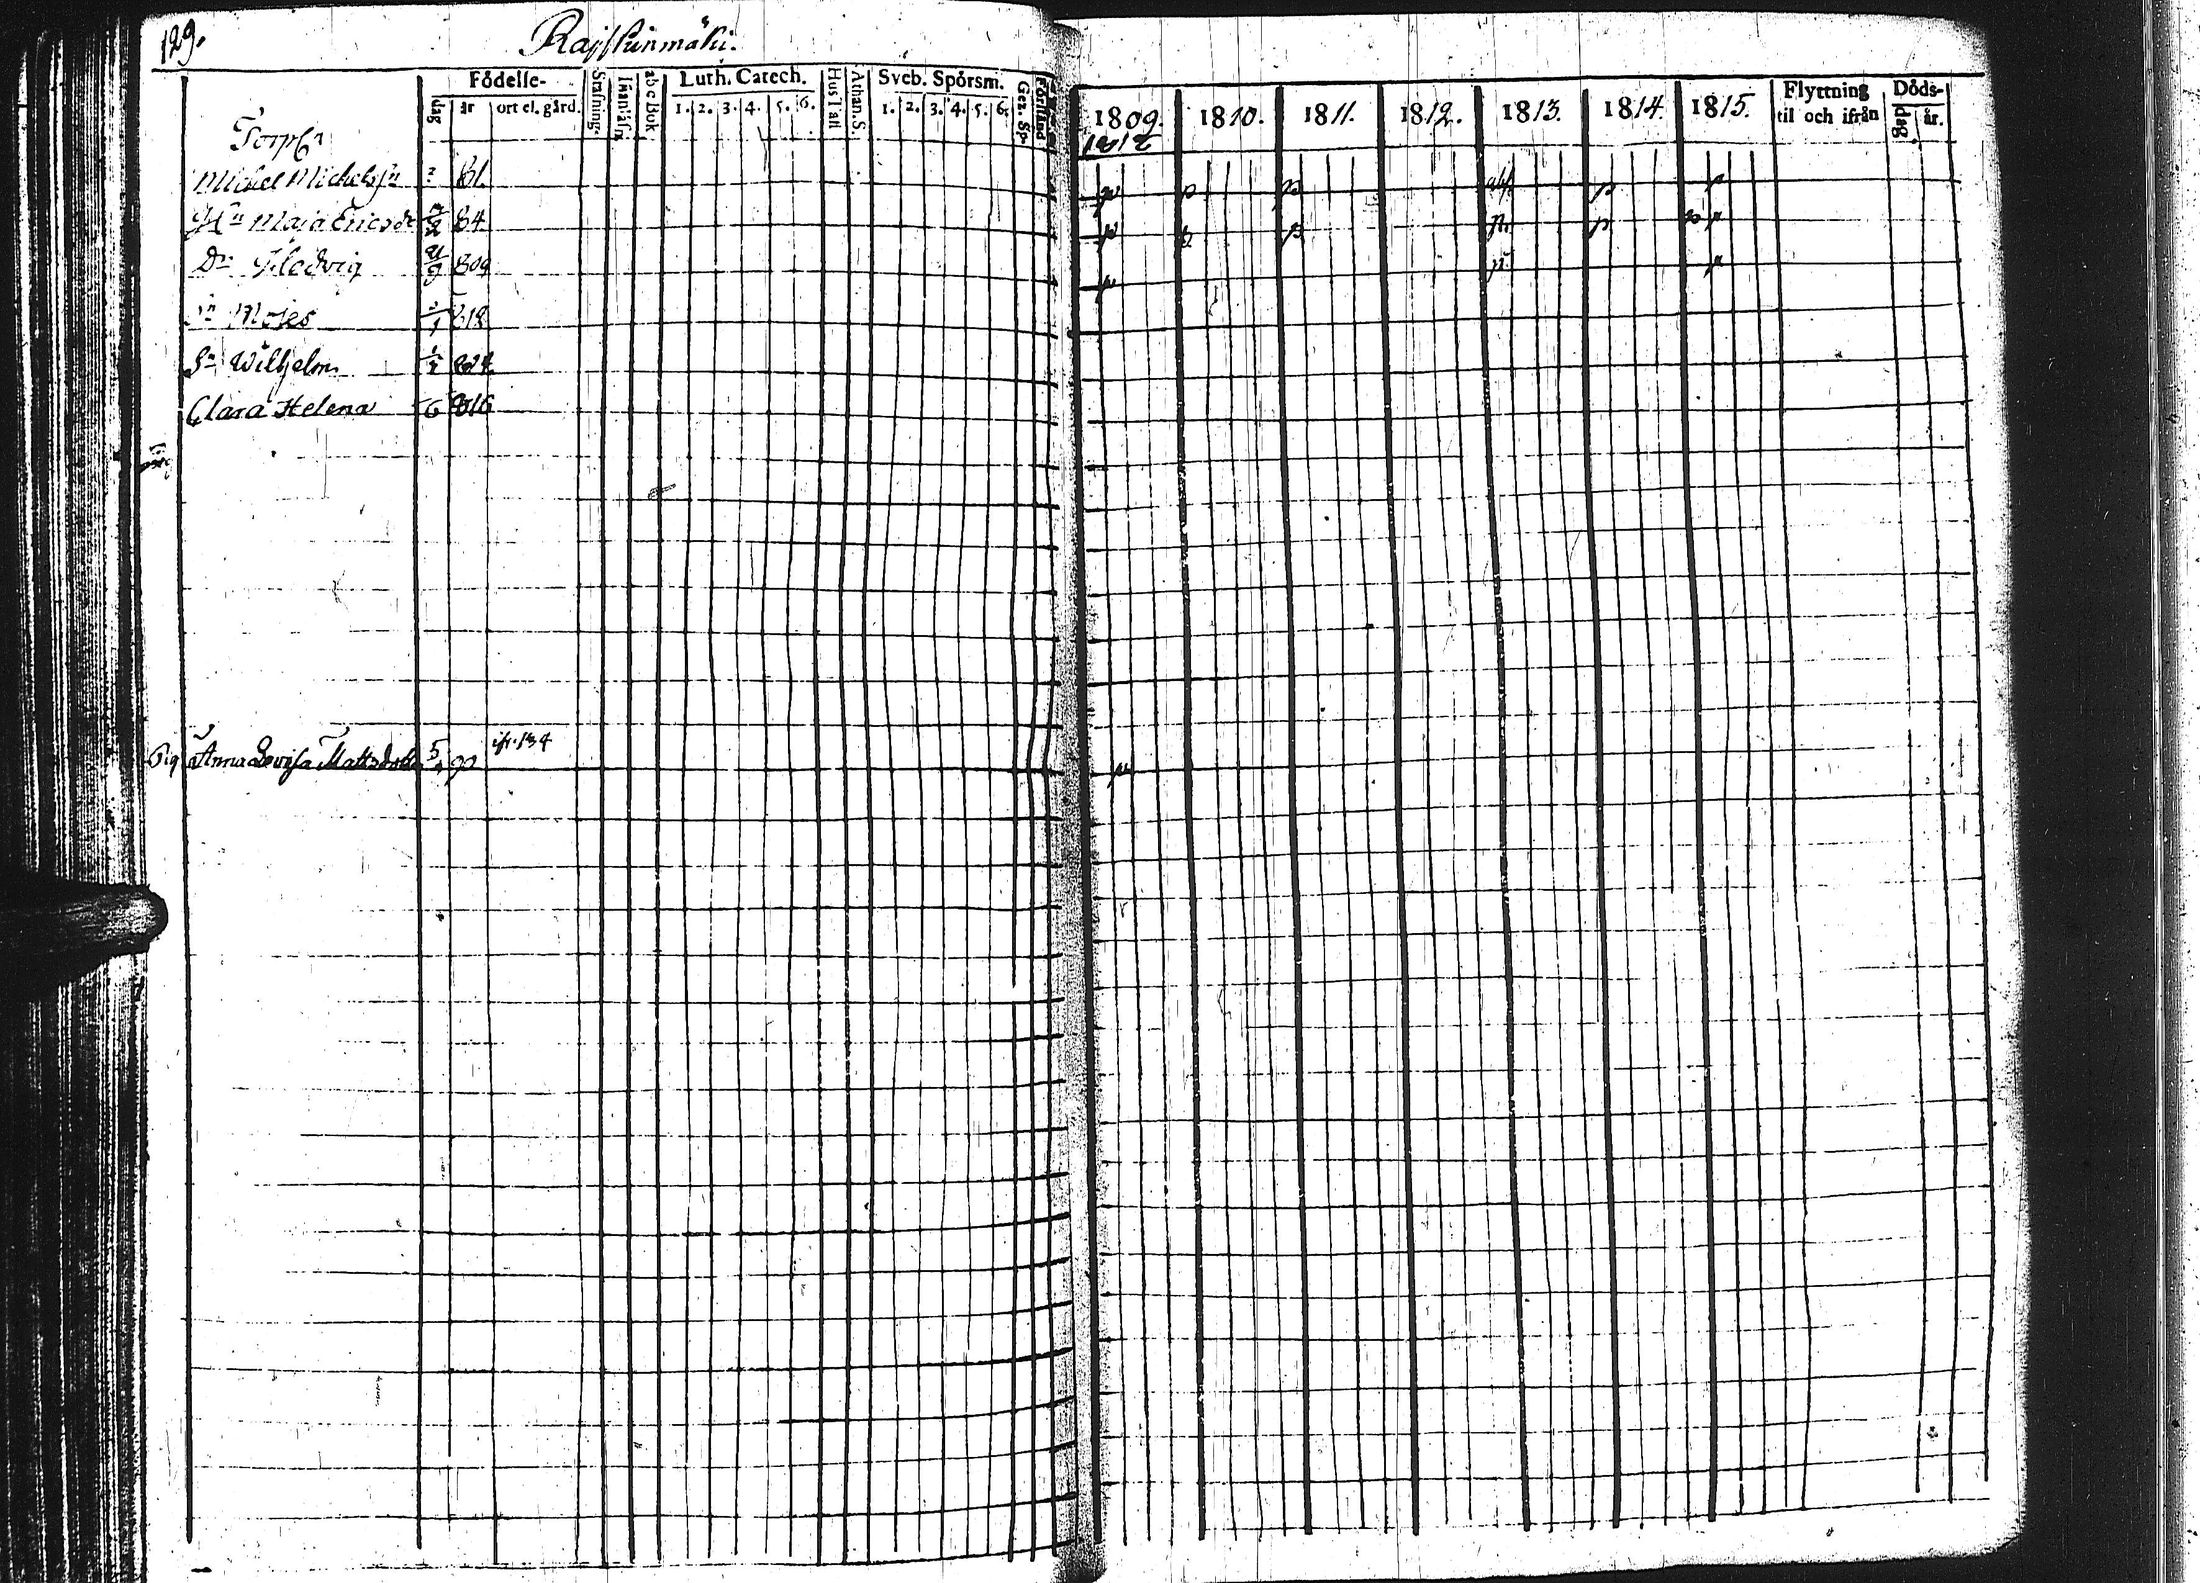 129.
Födelse-
dag år ort el. gård.
abc Bok
Luth. Catech.
1. 2. 3. 4. 5. 6.
Hus Tafl
Athan. S.
Sveb. Spörsm.
1. 2. 3. 4. 5. 6.
Förstånd
1809. 1810. 1811. 1812. 1813. 1814. 1815.
Flyttning
til och ifrån
Döds-
dag år.
1812
Michel Michelss:n 81. p p p p p
H:n Maja Ericsdr 84. p p p p p p p
Dr Hedvig 21/9 809 p p p
S:n Moses 818
S:n Wilhelm 824
Clara Helena 6 816
ifr. 134
Pig Anna Lovisa Mattsdotter 5 90 p